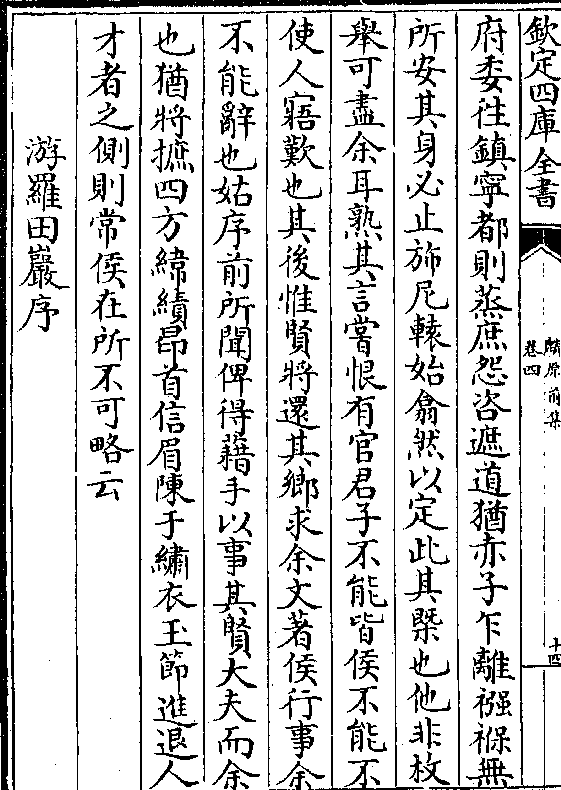 欽定四庫全書
麟原前集
卷四
十四
府委往鎮寧都則蒸庶怨咨遮道猶赤子乍離襁褓無
所安其身必止旆尼轅始翕然以定此其槩也他非枚
舉可盡余耳熟其言嘗恨有官君子不能皆侯不能不
使人寤歎也其後惟賢將還其鄉求余文著侯行事余
不能辭也姑序前所聞俾得藉手以事其賢大夫而余
也猶將摭四方緯績昂首信眉陳于繡衣玉節進退人
才者之側則常侯在所不可略云
游羅田巖序